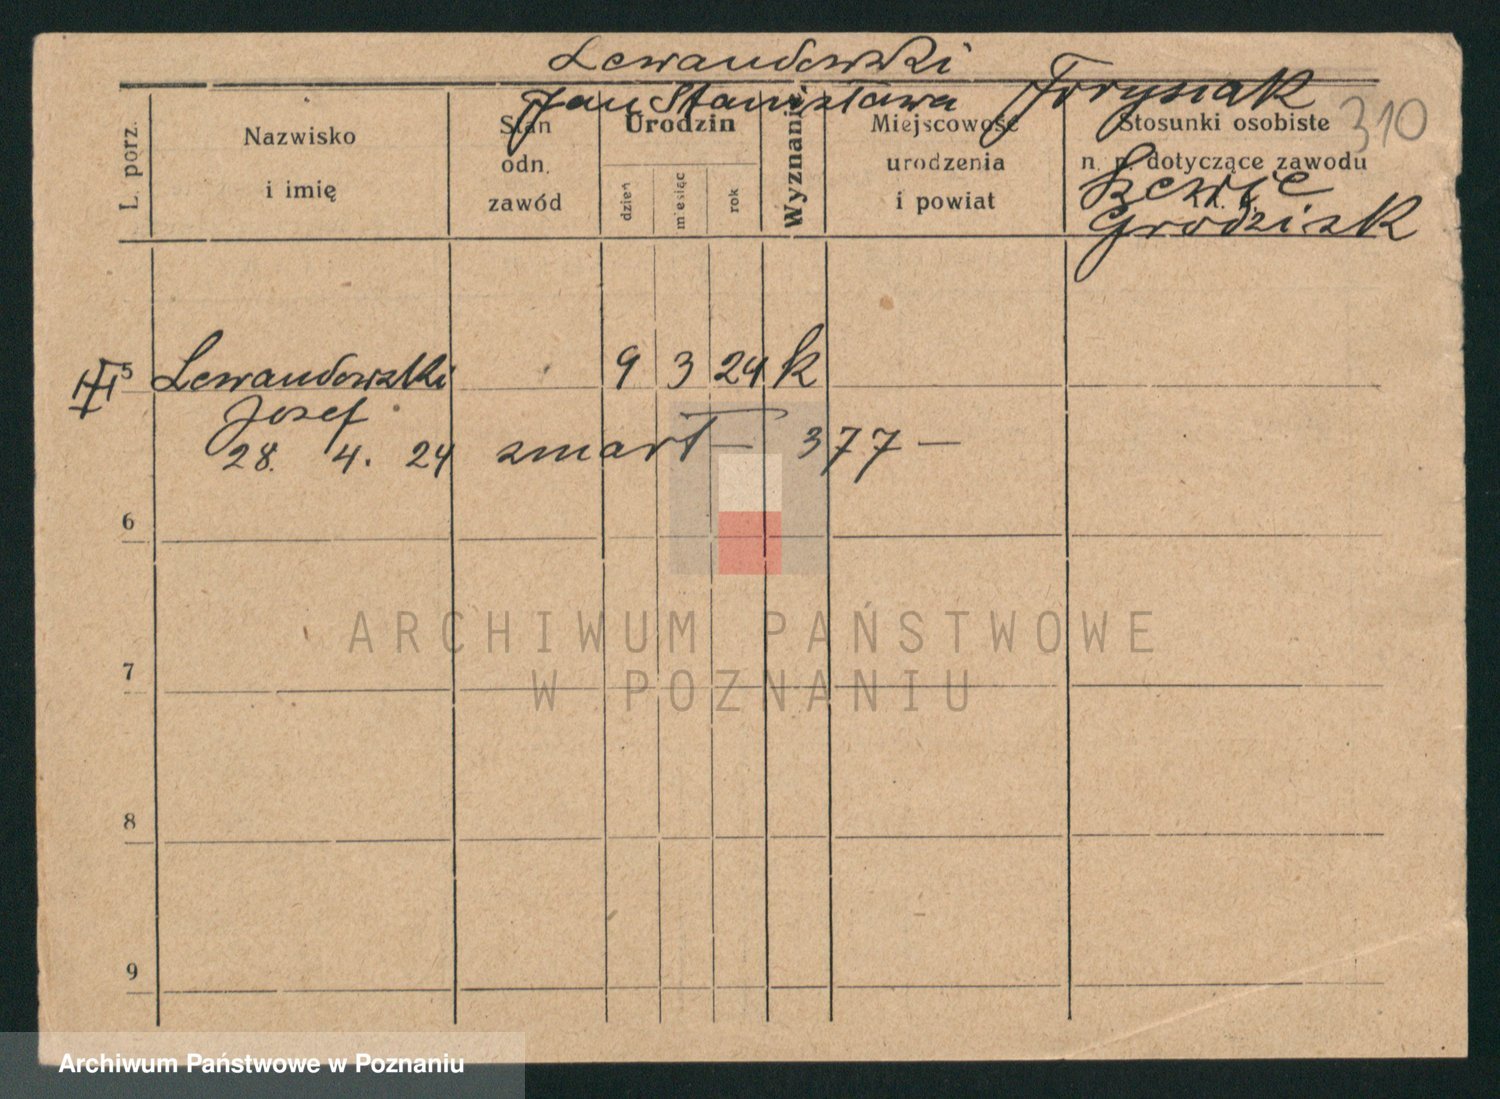 Lewandowski
Jan Stanisława Forysiak
310
L. porz.
Nazwisko
i imię
Stan
odn.
zawód
Urodzin
dzień
miesiąc
rok
Wyznanie
Miejscowość
urodzenia
i powiat
Stosunki osobiste
n. p. dotyczące zawodu
Grodzisk
5 Lewandowski 9 3 24 k
Josef
28. 4. 24 zmart — 377 —
6
7
8
9
ARCHIWUM PAŃSTWOWE
W POZNANIU
Archiwum Państwowe w Poznaniu